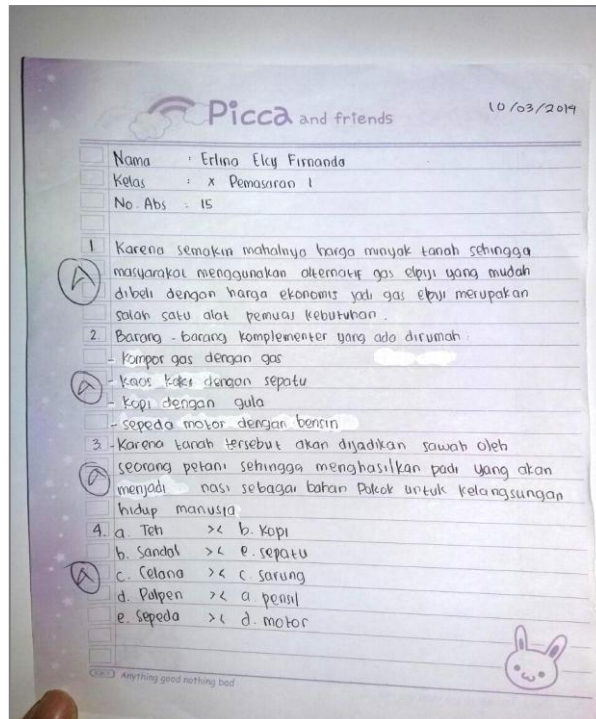 Picca and friends
10/03/2019
Nama : Erlina Elcy Firnanda
Kelas : X Pemasaran 1
No. Abs : 15
1. Karena semakin mahalnya harga minyak tanah sehingga
A masyarakat menggunakan alternatif gas elpiji yang mudah
dibeli dengan harga ekonomis jadi gas elpiji merupakan
salah satu alat pemuas kebutuhan.
2. Barang-barang komplementer yang ada dirumah :
- Kompor gas dengan gas
A - kaos kaki dengan sepatu
- kopi dengan gula
- sepeda motor dengan bensin
3. - Karena tanah tersebut akan dijadikan sawah oleh
A seorang petani sehingga menghasilkan padi yang akan
menjadi nasi sebagai bahan Pokok untuk kelangsungan
hidup manusia
4. a. Teh >< b. Kopi
b. Sandal >< e. sepatu
A c. Celana >< c. sarung
d. Pulpen >< a. pensil
e. Sepeda >< d. motor
Anything good nothing bad